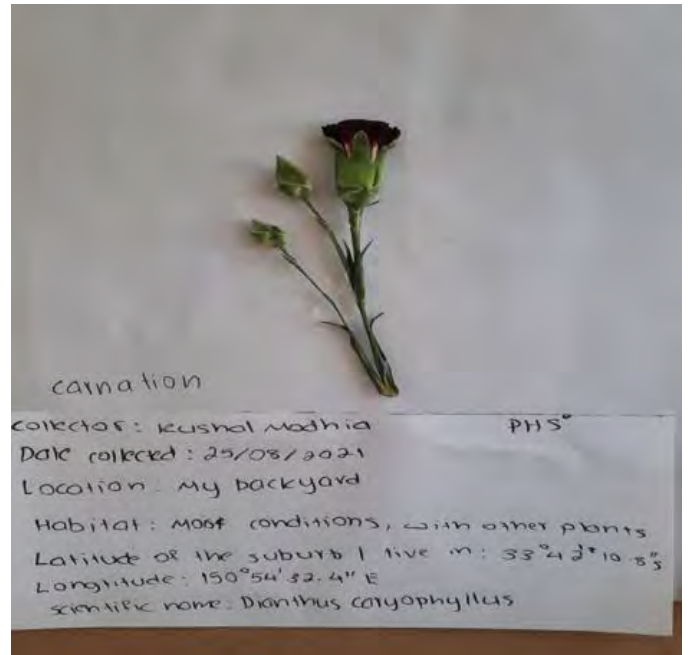 carnation
Collector: Kushal Modhia
PHS
Date collected: 25/08/2021
Location: My backyard
Habitat: Most conditions, with other plants
Latitude of the suburb I live in: 33°42'10.8"S
Longtitude: 150°54'32.4" E
scientific name: Dianthus caryophyllus